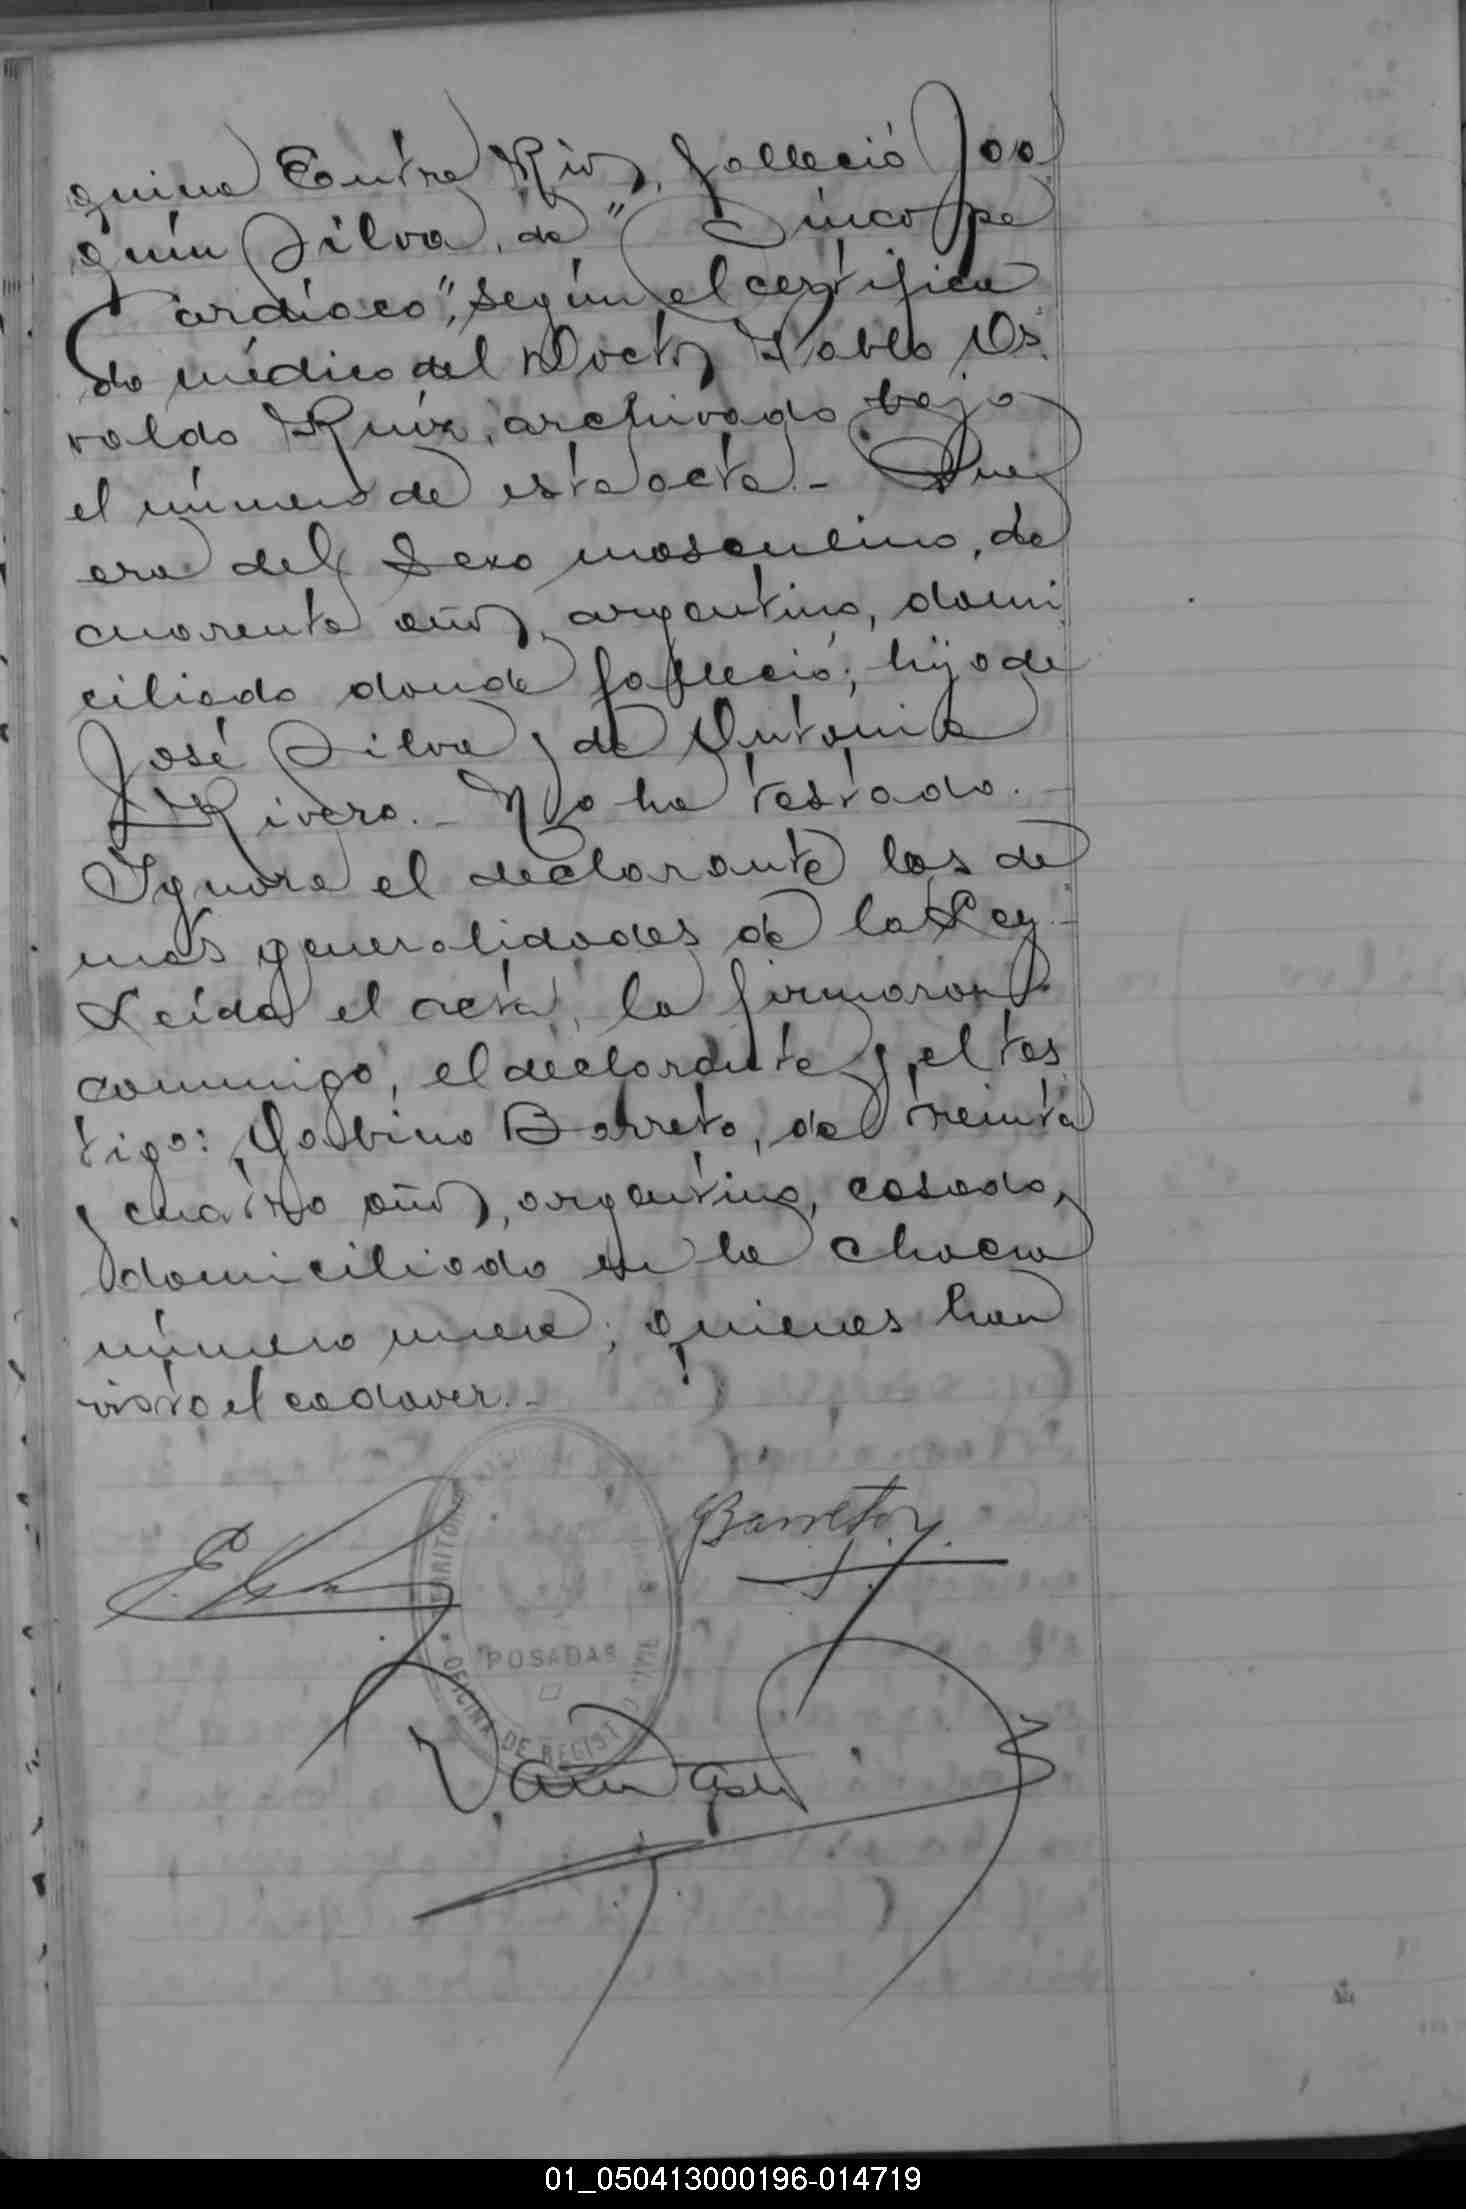 quina Entre Ríos, falleció Joa
quín Silva, de "Síncope
Cardíaco", según el certifica
do médico del Doctor Pablo Os
valdo Ruíz, archivado bajo
el número de esta acta.- Que
era del sexo masculino, de
cuarenta años, argentino, domi
ciliado donde falleció; hijo de
José Silva y de Antonia
Rivero.- No ha testado.-
Ignora el declarante las de
más generalidades de la Ley.-
Leída el acta, la firmaron
conmigo, el declarante y el tes
tigo: Gabino Barreto, de treinta
y cuatro años, argentino, casado,
domiciliado en la chacra
número nueve; quienes han
visto el cadaver.-
TERRITORIO
POSADAS
OFICINA DE REGIST
Barreto
01_050413000196-014719